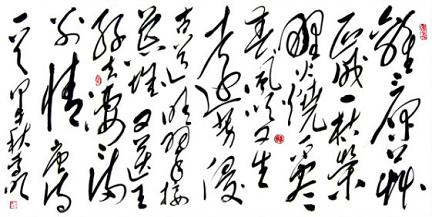 離々原上草
一歲一枯榮
野火燒不盡
春風吹又生
遠芳侵
古道晴翠接
荒城又送王
孫去萋々滿
別情 唐詩
一首 甲午秋